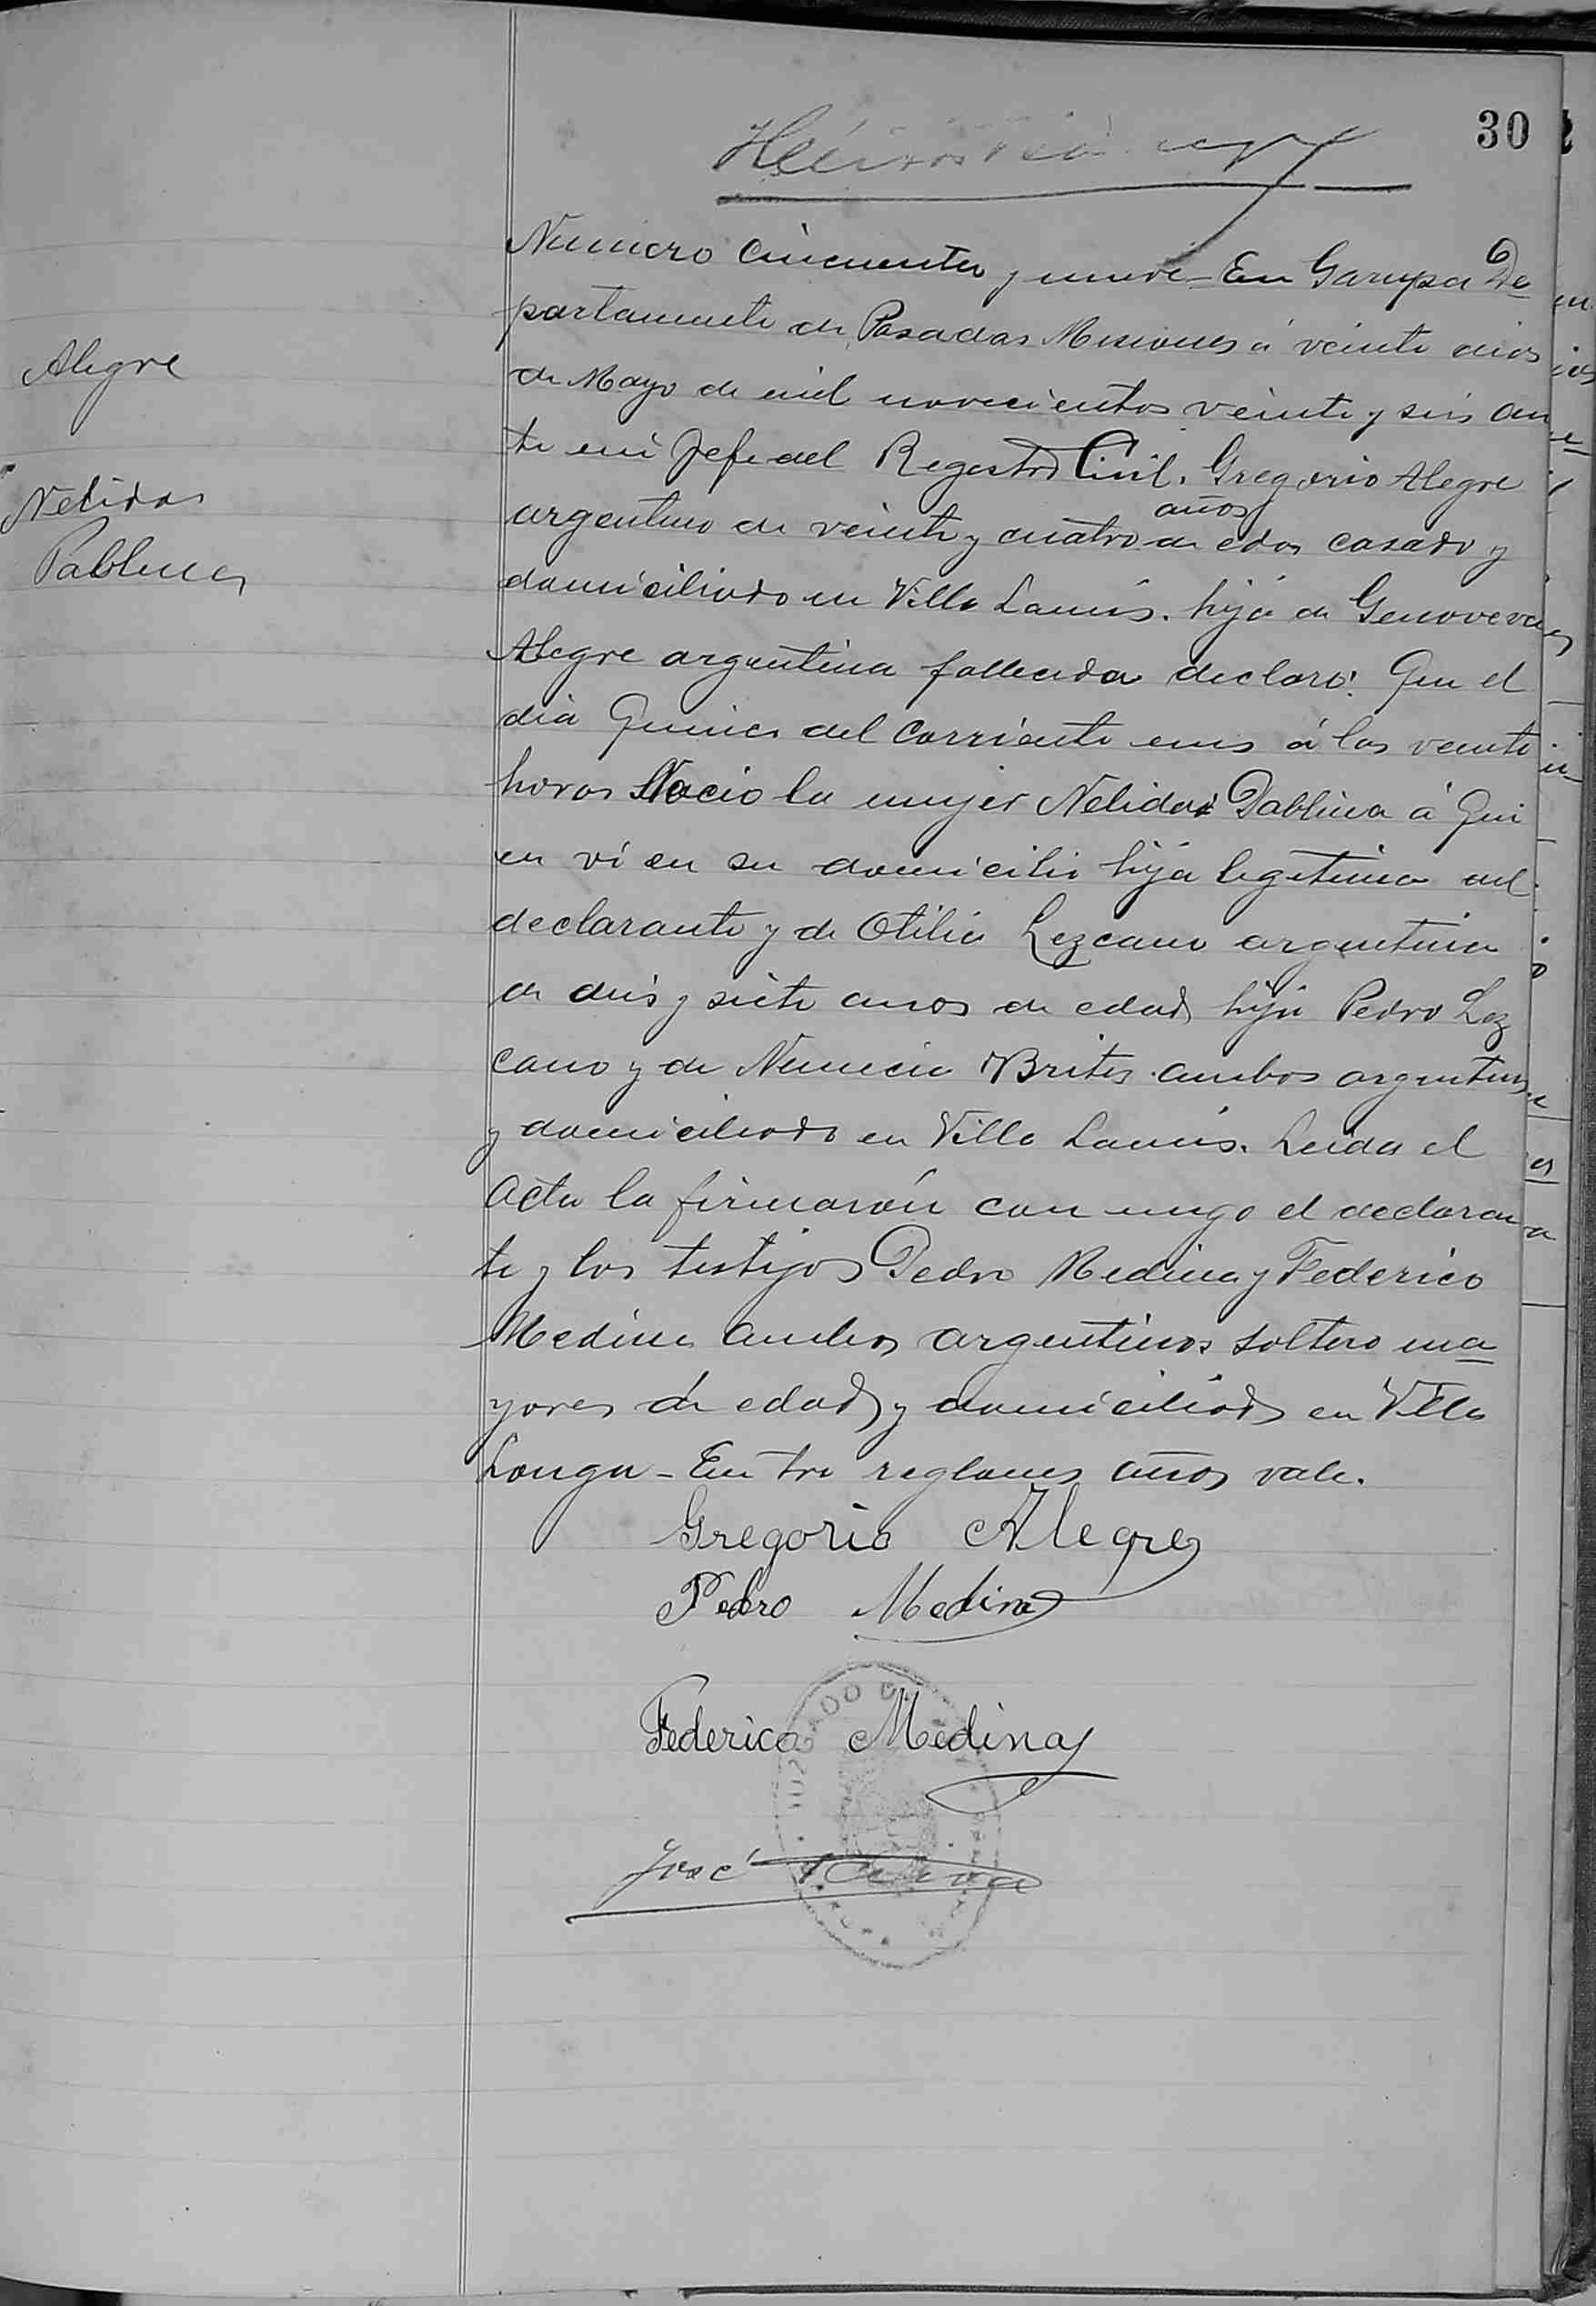 30
Numero cincuenta y nueve - En Garupa De
partamento de Posadas Misiones á veinte dias
Alegre
de Mayo de mil novecientos veinte y seis an
te mi Jefe del Registro Civil. Gregorio Alegre
años
Nelida
argentino de veinte y cuatro de edad casado y
Pablina
domiciliado en Villa Lanús. hijo de Genoveva
Alegre argentina fallecida declaro: Que el
dia Quince del Corriente mes á las veinte
horas Nacio la mujer Nelida Pablina á Qui
en vi en su domicilio hija legitima del
declarante y de Otilia Lezcano argentina
de diez y siete años de edad hija Pedro Lez
cano y de Brites ambos argentinos
y domiciliado en Villa Lanús. Leida el
Acta la firmarón con migo el declaran
te y los testigos Pedro Medina y Federico
Medina Ambos argentinos soltero ma
yores de edad y domiciliado en Villa
Longa - En tre reglones años vale.
Gregorio Alegre
Pedro Medina
Federico Medina
JUZGADO DE
José